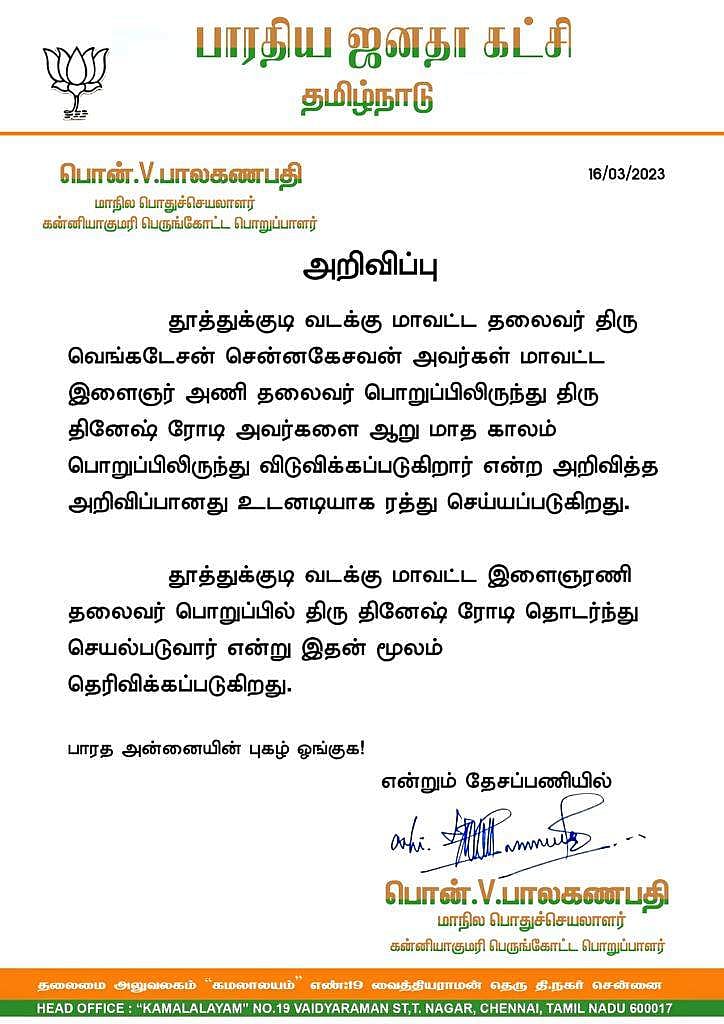 பாரதிய ஜனதா கட்சி
தமிழ்நாடு
பொன்.V.பாலகணபதி
மாநில பொதுச்செயலாளர்
கன்னியாகுமரி பெருங்கோட்ட பொறுப்பாளர்
16/03/2023
அறிவிப்பு
தூத்துக்குடி வடக்கு மாவட்ட தலைவர் திரு
வெங்கடேசன் சென்னகேசவன் அவர்கள் மாவட்ட
இளைஞர் அணி தலைவர் பொறுப்பிலிருந்து திரு
தினேஷ் ரோடி அவர்களை ஆறு மாத காலம்
பொறுப்பிலிருந்து விடுவிக்கப்படுகிறார் என்ற அறிவித்த
அறிவிப்பானது உடனடியாக ரத்து செய்யப்படுகிறது.
தூத்துக்குடி வடக்கு மாவட்ட இளைஞரணி
தலைவர் பொறுப்பில் திரு தினேஷ் ரோடி தொடர்ந்து
செயல்படுவார் என்று இதன் மூலம்
தெரிவிக்கப்படுகிறது.
பாரத அன்னையின் புகழ் ஓங்குக!
என்றும் தேசப்பணியில்
பொன்.V.பாலகணபதி
மாநில பொதுச்செயலாளர்
கன்னியாகுமரி பெருங்கோட்ட பொறுப்பாளர்
தலைமை அலுவலகம் “கமலாலயம்” எண்:19 வைத்தியராமன் தெரு தி.நகர் சென்னை
HEAD OFFICE : “KAMALALAYAM” NO.19 VAIDYARAMAN ST,T. NAGAR, CHENNAI, TAMIL NADU 600017